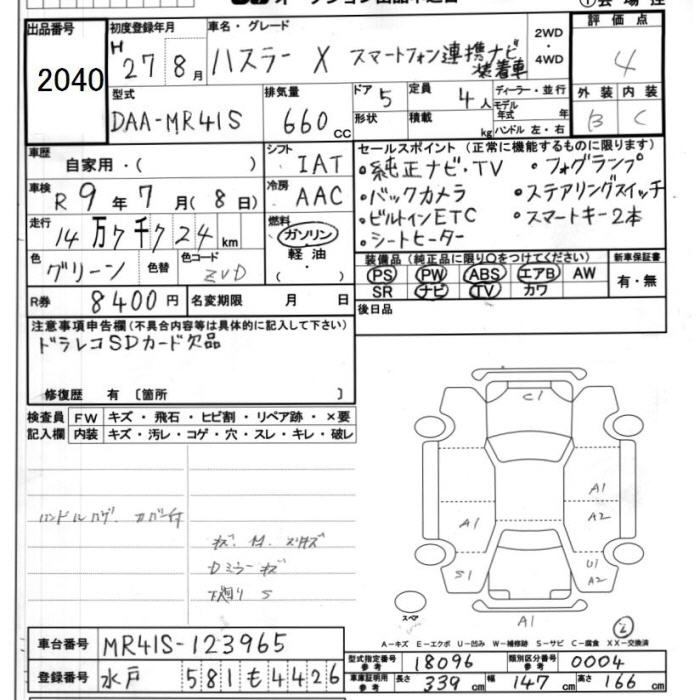 出品番号
2040
初度登録年月
H 27 8月
車名・グレード
ハスラー X スマートフォン連携ナビ
装着車
2WD
・
4WD
評価点
4
外装 内装
B C
型式
DAA-MR41S
排気量
660 cc
ドア 5
定員 4人
形状
積載 kg
ディーラー・並行
モデル
年式 年
ハンドル 左・右
車歴
自家用・( )
シフト
IAT
車検
R 9年 7月(8日)
冷房
AAC
走行
14万7千724 km
燃料
ガソリン
軽油
( )
色
グリーン
色替
色コード
ZVD
R券 8400円
名変期限 月 日
セールスポイント(正常に機能するものに限ります)
・純正ナビ・TV ・フォグランプ
・バックカメラ ・ステアリングスイッチ
・ビルトインETC ・スマートキー2本
・シートヒーター
装備品(純正品に限り○をつけてください)
PS PW ABS エアB AW
SR ナビ TV カワ
新車保証書
有・無
後日品
注意事項申告欄(不具合内容等は具体的に記入して下さい)
ドラレコSDカード欠品
修復歴 有〔箇所 〕
検査員 FW キズ・飛石・ヒビ割・リペア跡・×要
記入欄 内装 キズ・汚レ・コゲ・穴・スレ・キレ・破レ
下廻り S
C1
A1
A1
A2
S1
U1
A2
スペア
A1
A-キズ E-エクボ U-凹み W-補修跡 S-サビ C-腐食 XX-交換済
車台番号 MR41S-123965
登録番号 水戸 581 も 4426
型式指定番号
参考
18096
類別区分番号
参考
0004
車庫証明用
参考
長さ 339cm 幅 147cm 高さ 166cm